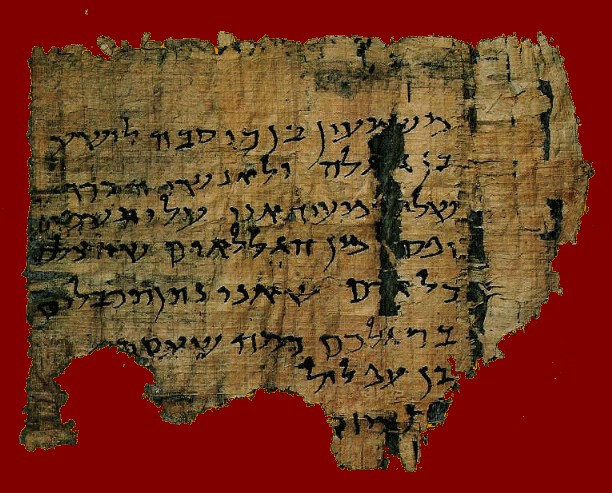 משמעון בן כוסבה לישע
בן גלגלה ולאנשי הכרך
שלום מעיד אני עלי תשמים
יפס מן הגללאים שהצלכם
כל אדם שאני נותן תכבלים
ברגלכם כמה שעסתי
לבן עפלול